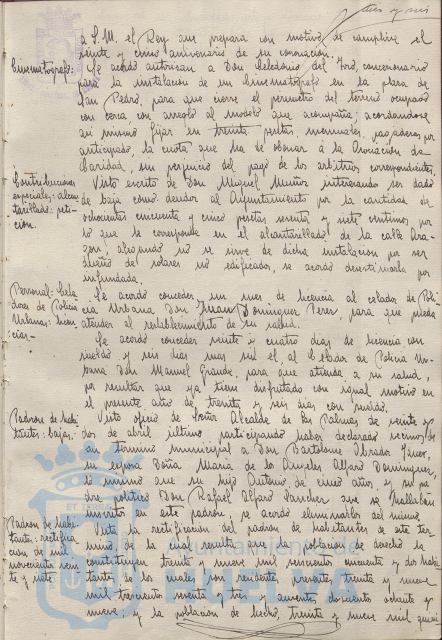 á S.M. el Rey que prepara con motivo de cumplirse el
veinte y cinco aniversario de su coronación.
Cinematógrafo:
Se acordó autorizar a Don Celedonio del Prd, concesionario
para la instalación de un Cinematógrafo en la plaza de
San Pedro, para que cierre el perímetro del terreno ocupado
con cerca con arreglo al modelo que acompaña; acordandose
asi mismo fijar en treinta pesetas mensuales, pagaderas por
anticipado, la cuota que ha de abonar á la Asociación de
Caridad, sin perjuicio del pago de los arbitrios correspondientes.
Contribuciones
especiales; alcan-
tarillado: peti-
ción.
Visto escrito de Don Miguel Muñoz interesando ser dado
de baja como deudor al Ayuntamiento por la cantidad de
ochocientas cincuenta y cinco pesetas sesenta y siete centimos por
lo que le corresponde en el alcantarillado de la calle Ara-
gon, alegando no se sirve de dicha instalacion por ser
dueño de solares no edificados, se acordó desestimarla por
infundada.
Personal: Cela-
dores de Policia
Urbana; licen-
cias:-
Se acordó conceder un mes de licencia al celador de Poli-
cia Urbana Don Juan Dominguez Perez, para que pueda
atender al restablecimiento de su salud.
Se acordó conceder veinte y cuatro dias de licencia con
sueldo y seis dias mas sin el, al Celador de Policia Ur-
bana Don Manuel Grande, para que atienda a su salud,
por resultar que ya tiene disfrutado con igual motivo en
el presente año de treinta y seis dias con sueldo.
Padron de habi-
tantes: bajas.
Visto oficio de Señor Alcalde de Las Palmas de veinte y
dos de abril último, participando haber declarado vecinos de
aquel termino municipal a Don Bartolome Obrador
su esposa Doña Maria de los Angeles Alfaro Dominguez,
lo mismo que su hijo Antonio, de cinco años, y su pa-
dre politico Don Rafael Alfaro Sanchez que se hallaban
inscritos en este padron, se acordó eliminarlos del mismo.
Padron de habi-
tantes: rectifica-
ción de mil
novecientos vein-
te y siete
Vista la rectificación del padron de habitantes de este ter-
mino de la cual resulta que la poblacion de derecho la
constituyen treinta y nueve mil seiscientos cincuenta y dos habi-
tantes de los cuales son residentes presentes, treinta y nueve
mil trescientos sesenta y tres y ausentes, doscientos ochenta y
nueve; y la poblacion de hecho, treinta y nueve mil
Ayuntamiento de